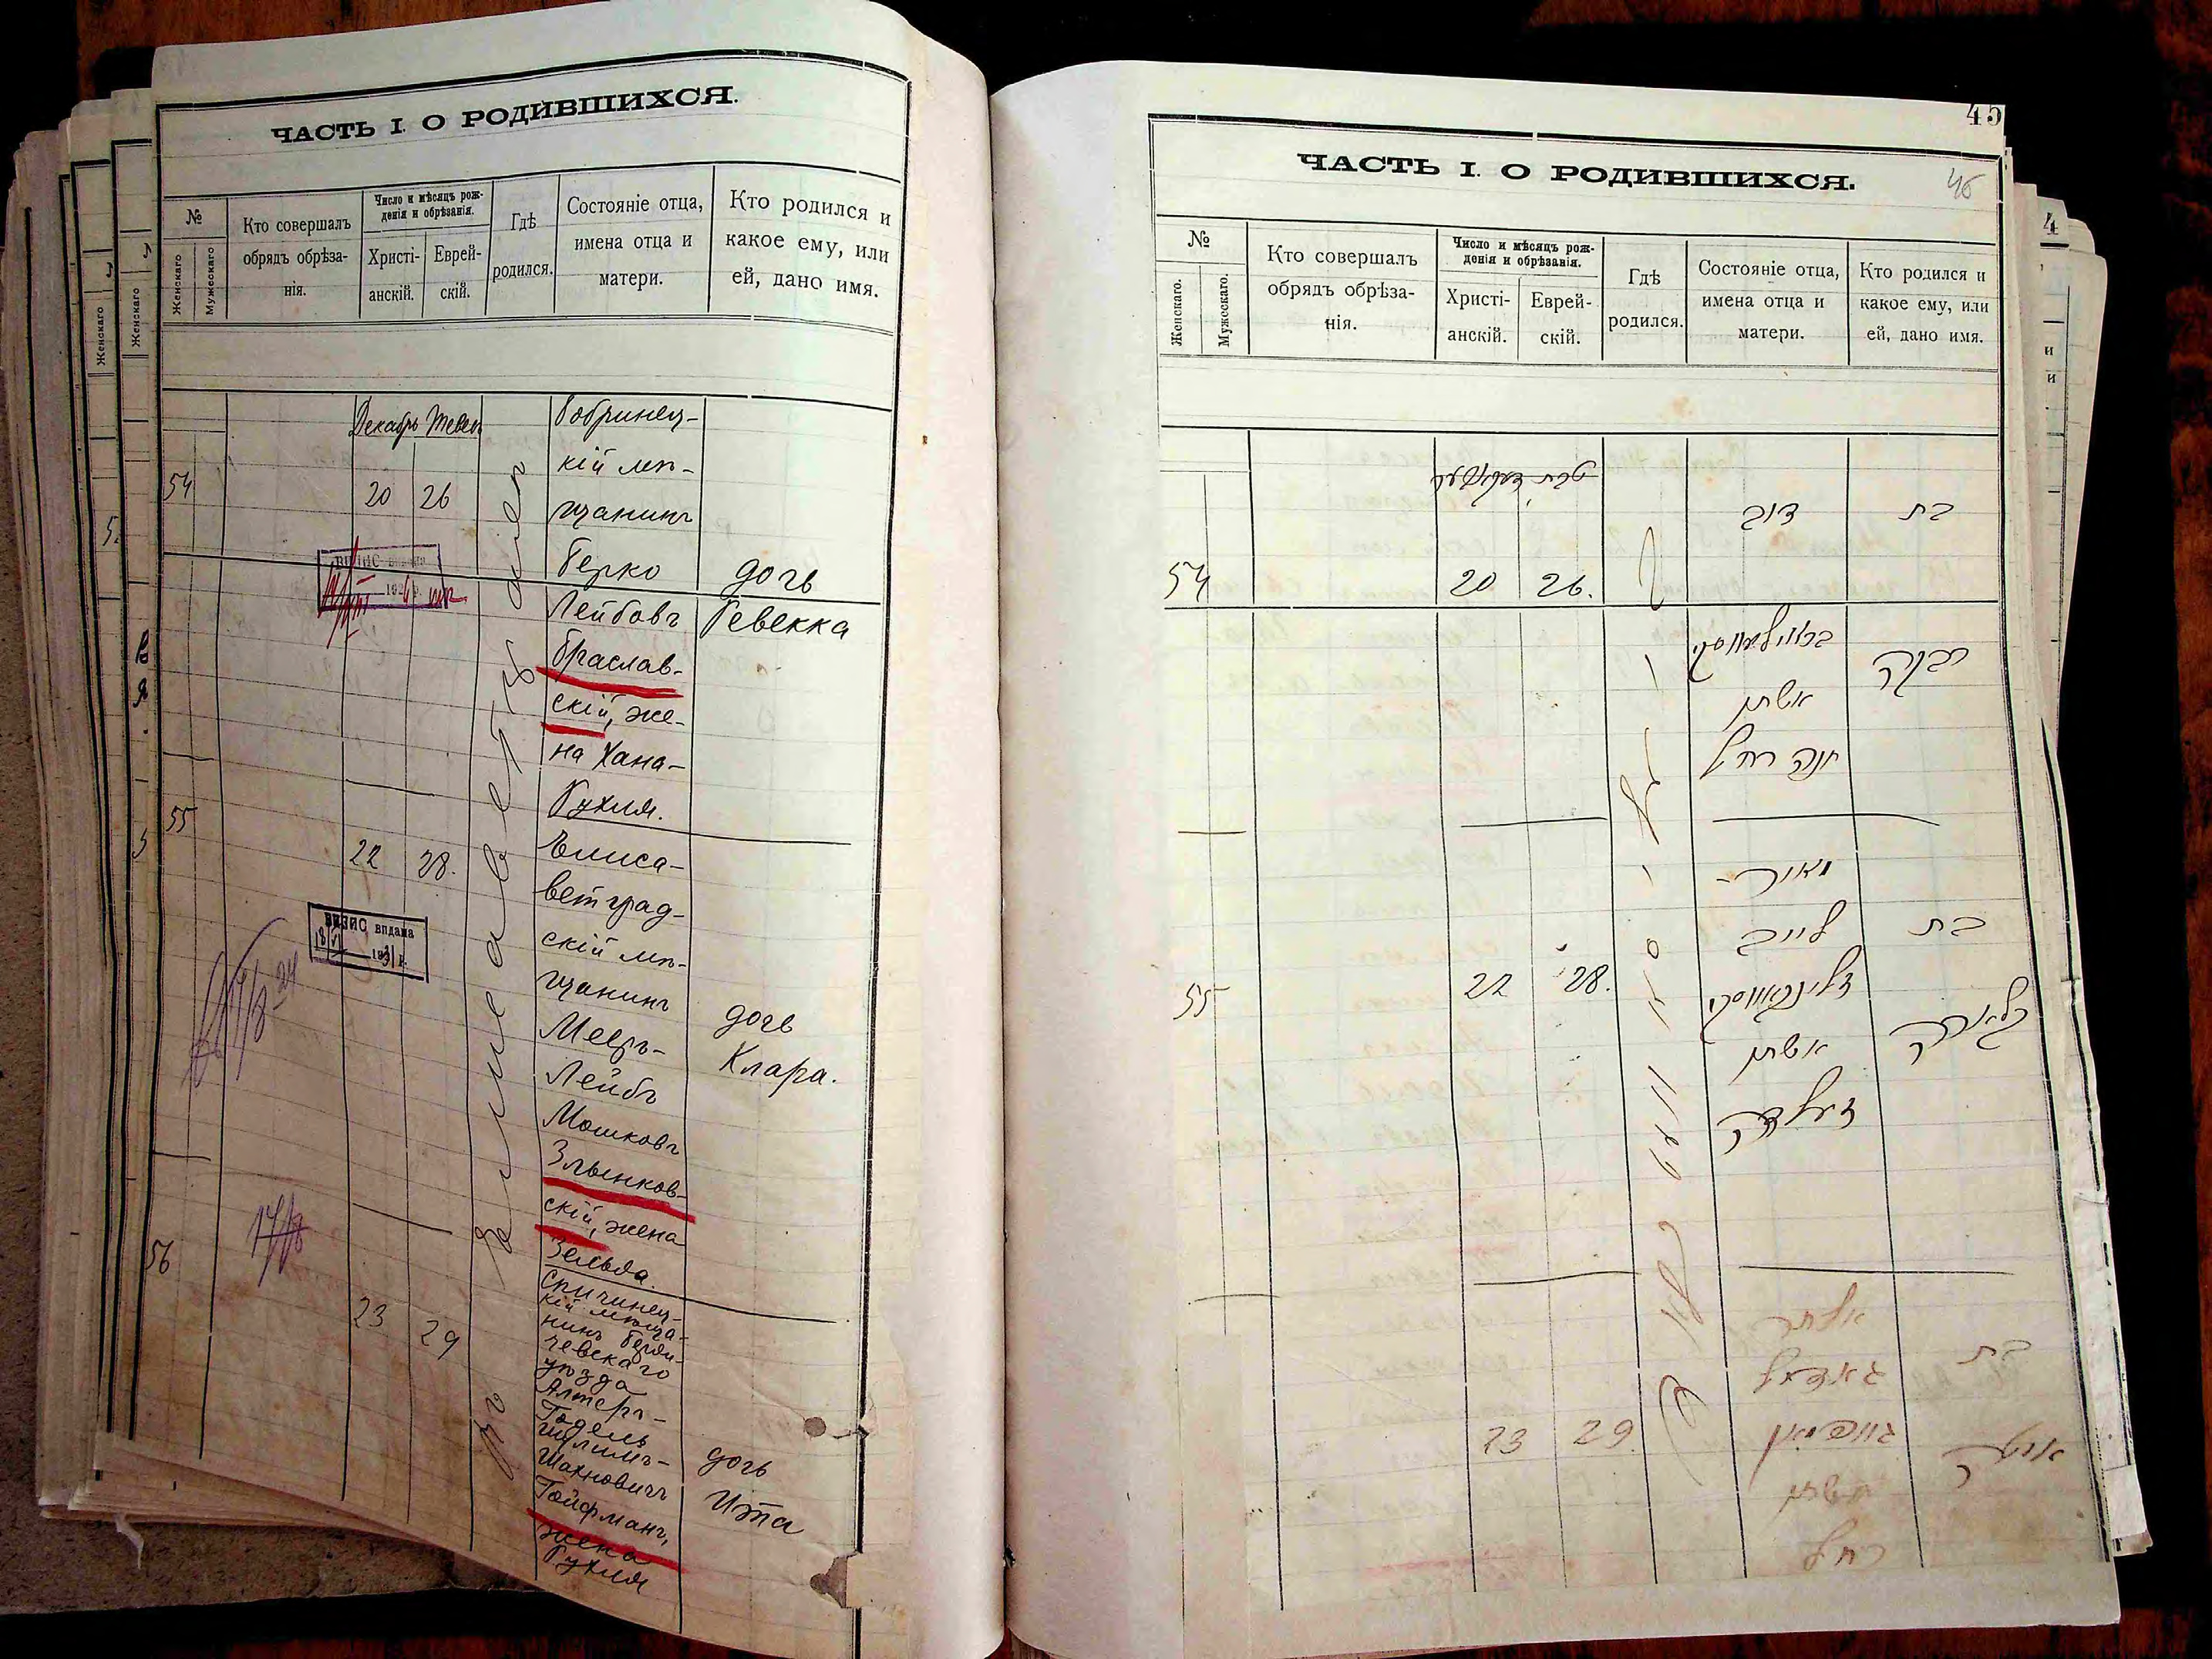 ЧАСТЬ I. О РОДИВШИХСЯ.
№
Женскаго
Мужескаго
Кто совершалъ
обрядъ обрѣза-
нія.
Число и мѣсяцъ рож-
денія и обрѣзанія.
Христі-
анскій.
Еврей-
скій.
Гдѣ
родился.
Состояніе отца,
имена отца и
матери.
Кто родился и
какое ему, или
ей, дано имя.
Декабрь Тевет
54
20 26
Бобринец-
кій мѣ-
щанинъ
Берко
Лейбовъ
Браслав-
скій, же-
на Хана-
Рухля.
дочь
Ревекка
55
22 28.
ВИПИС видана
1931 р.
Елиса-
ветград-
скій мѣ-
щанинъ
Мееръ-
Лейбъ
Мошковъ
Злынков-
скій, жена
Зельда.
дочь
Клара.
56
23 29
Спичинец-
кій мѣща-
нинъ Берди-
чевскаго
уѣзда
Алтеръ-
Годель
Шулимъ-
Шахновичъ
Гойфманъ,
жена
Рухля
дочь
Ита
Въ Елисаветградѣ
45
ЧАСТЬ I. О РОДИВШИХСЯ.
46
№
Женскаго.
Мужескаго.
Кто совершалъ
обрядъ обрѣза-
нія.
Число и мѣсяцъ рож-
денія и обрѣзанія.
Христі-
анскій.
Еврей-
скій.
Гдѣ
родился.
Состояніе отца,
имена отца и
матери.
Кто родился и
какое ему, или
ей, дано имя.
54
20 26.
דוב
בת
רבקה
אשתו
חנה רחל
55
22 28.
מאיר-
לייב
אשתו
זעלדה
בת
קלארה
23 29.
אלתר
גאדעל
גויפמאן
אשתו
רחל
בת
איטה